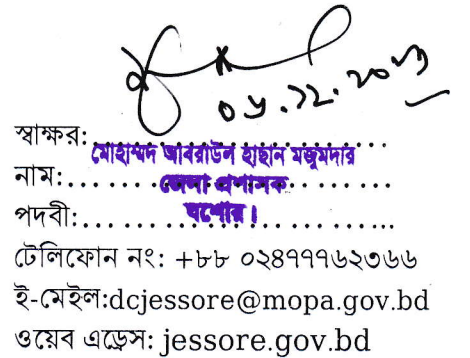 ০৬.১২.২০২৩
স্বাক্ষর:..............................
মোহাম্মদ আবরাউল হাছান মজুমদার
নাম:..............................
জেলা প্রশাসক
পদবী:..............................
যশোর।
টেলিফোন নং: +৮৮ ০২৪৭৭৭৬২৩৬৬
ই-মেইল:dcjessore@mopa.gov.bd
ওয়েব এড্রেস: jessore.gov.bd